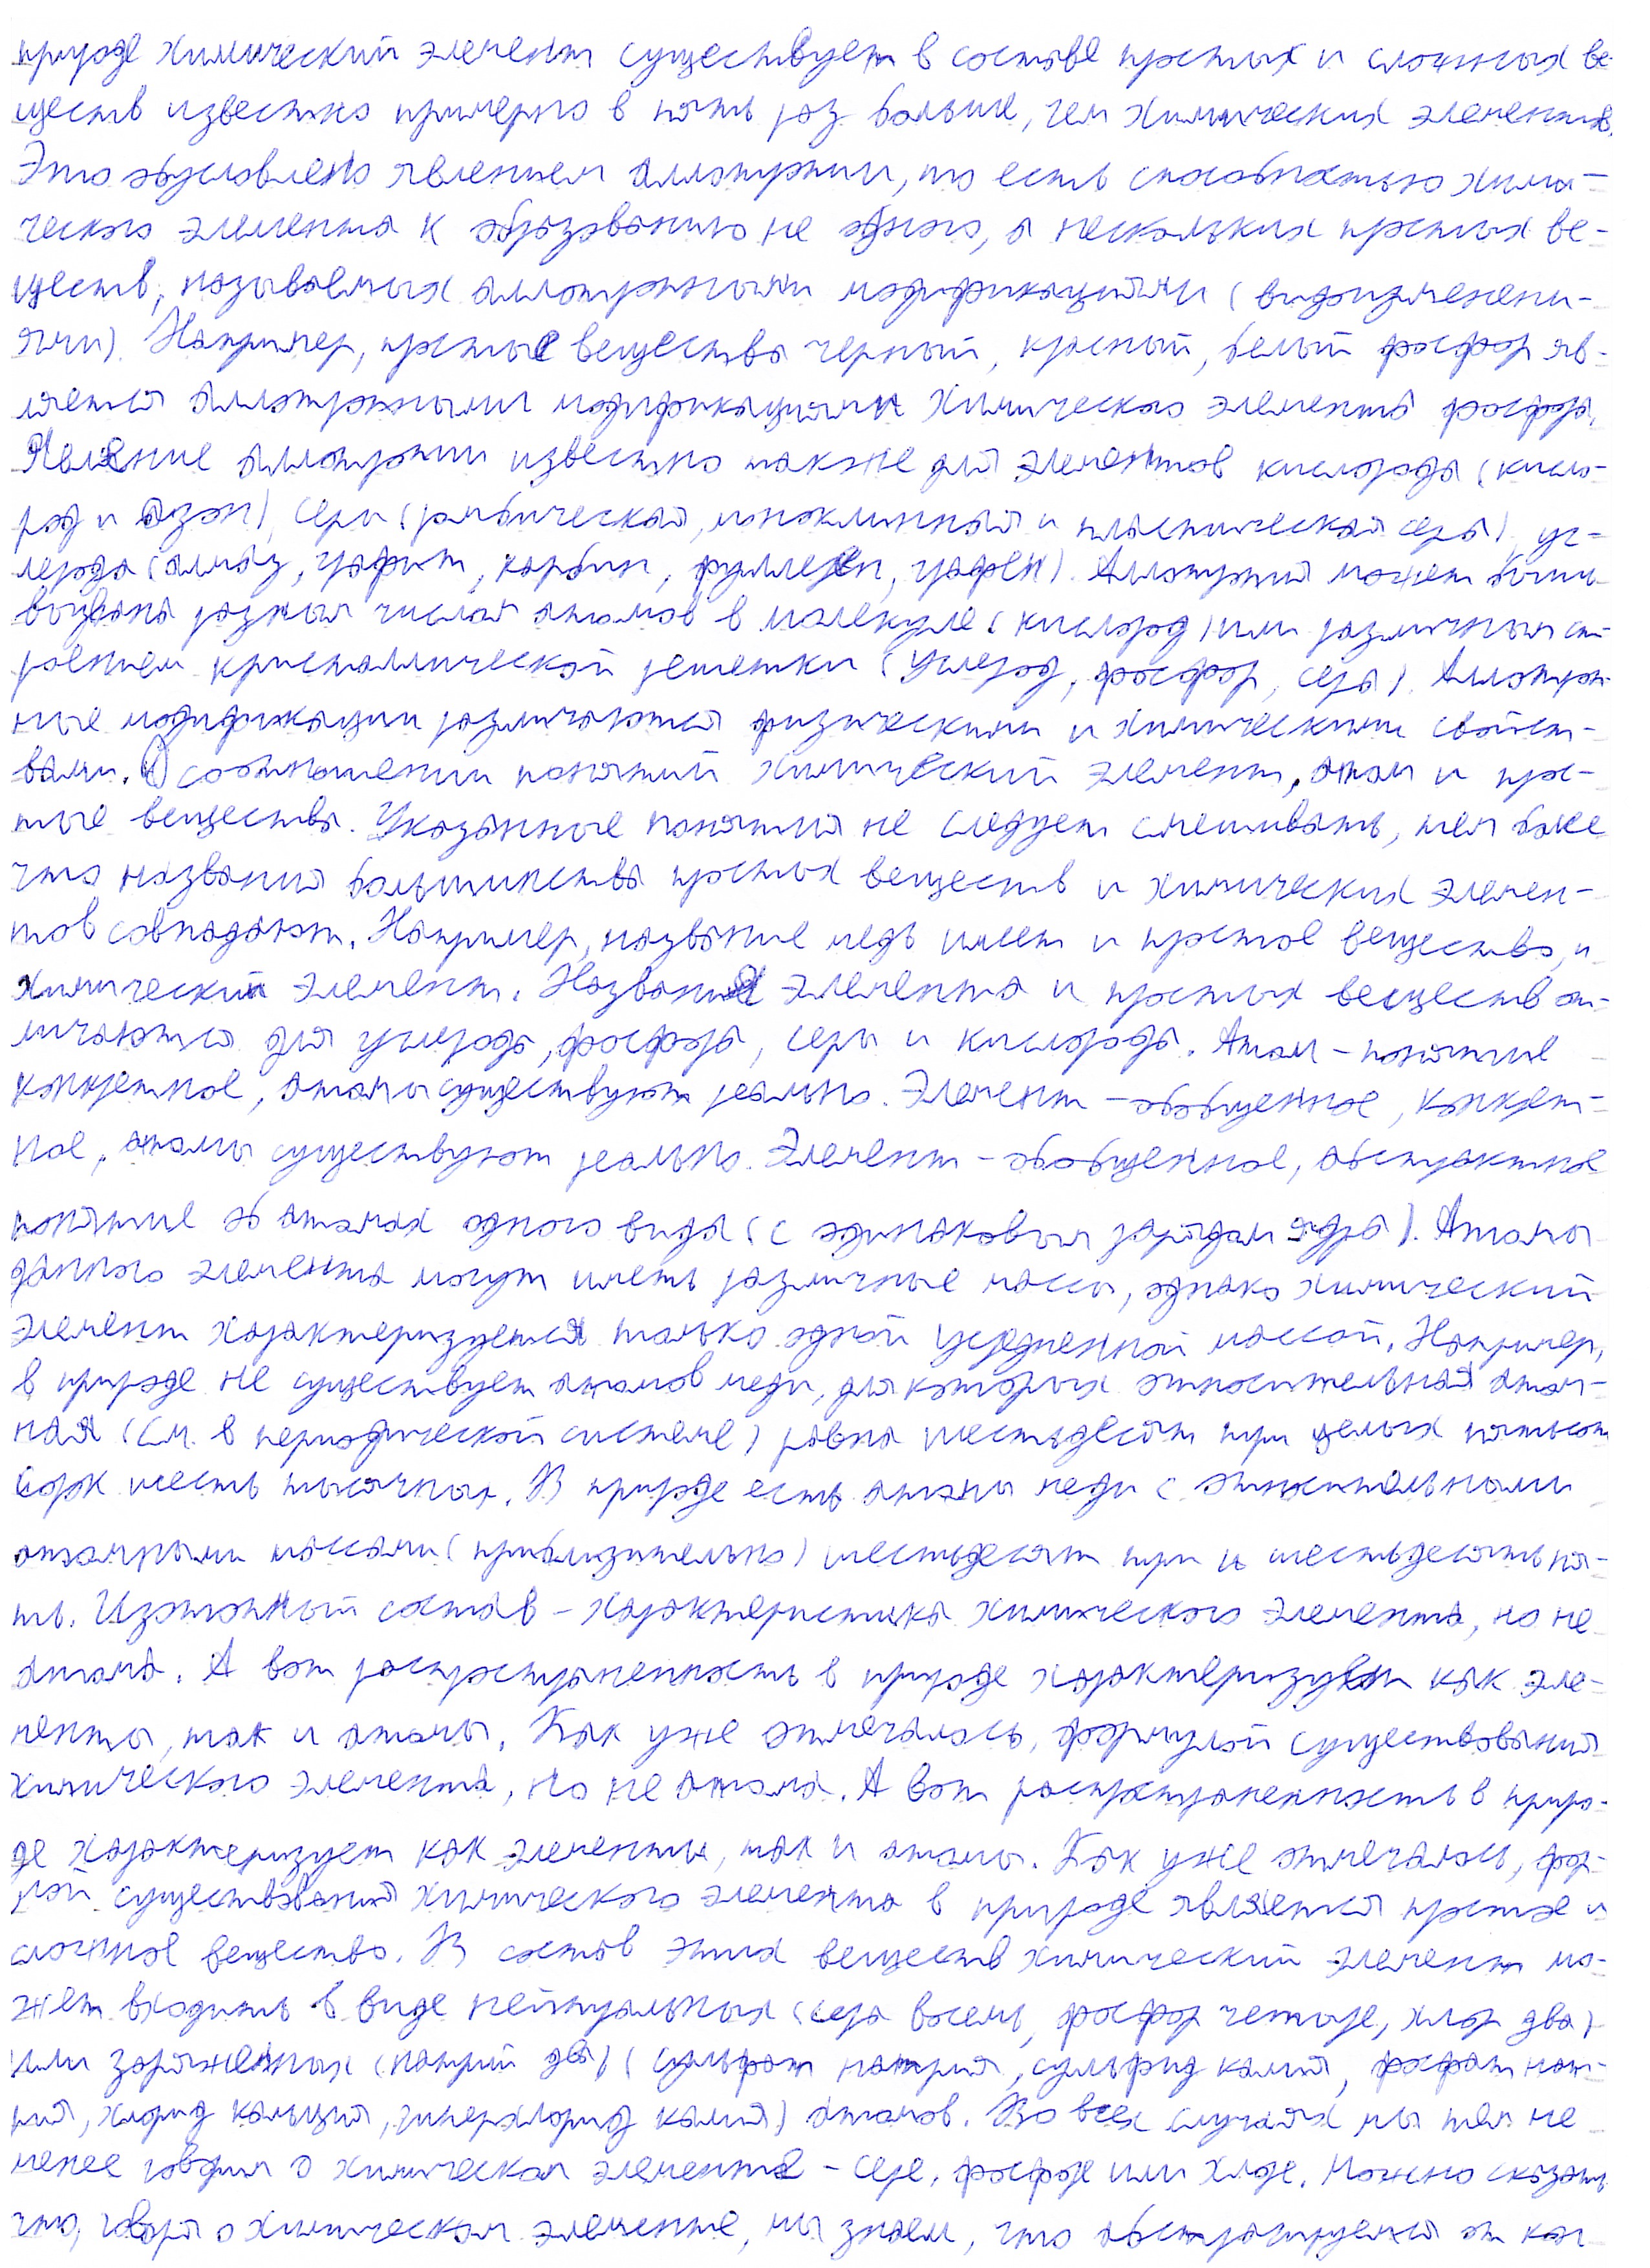 природе химический элемент существует в составе простых и сложных ве-
ществ известно примерно в пять раз больше, чем химических элементов.
Это обусловлено явлением аллотропии, то есть способностью хими-
ческого элемента к образованию не одного, а нескольких простых ве-
ществ, называемых аллотропными модификациями (видоизменени-
ями). Например, простые вещества черный, красный, белый фосфор яв-
ляется аллотропными модификациями химического элемента фосфора.
Явление аллотропии известно также для элементов кислорода (кисло-
род и озон), серы (ромбическая, моноклинная и пластическая сера), уг-
лерода (алмаз, графит, карбин, фуллерен, графен). Аллотропия может быть
вызвана разным числом атомов в молекуле (кислород) или различным ст-
роением кристаллической решетки (углерод, фосфор, сера). Аллотроп-
ные модификации различаются физическими и химическими свойст-
вами. О соотношении понятий химический элемент, атом и прос-
тые вещества. Указанные понятия не следует смешивать, тем более
что названия большинства простых веществ и химических элемен-
тов совпадают. Например, название медь имеет и простое вещество, и
химический элемент. Названия элемента и простых веществ от-
личаются для углерода, фосфора, серы и кислорода. Атом - понятие
конкретное, атомы существуют реально. Элемент - обобщенное, конкрет-
ное, атомы существуют реально. Элемент - обобщенное, абстрактное
понятие об атомах одного вида (с одинаковым зарядом ядра). Атомы
данного элемента могут иметь различные массы, однако химический
элемент характеризуется только одной усредненной массой. Например,
в природе не существует атомов меди, для которых относительная атом-
ная (см. в периодической системе) равна шестьдесят три целых пятьсот
сорок шесть тысячных. В природе есть атомы меди с относительными
атомными массами (приблизительно) шестьдесят три и шестьдесять пя-
ть. Изотопный состав - характеристика химического элемента, но не
атома. А вот распространенность в природе характеризует как эле-
менты, так и атомы. Как уже отмечалось, формулой существования
химического элемента, но не атома. А вот распространенность в приро-
де характеризует как элементы, так и атомы. Как уже отмечалось, фор-
мой существования химического элемента в природе является простое и
сложное вещество. В состав этих веществ химический элемент мо-
жет входить в виде нейтральных (сера восемь, фосфор четыре, хлор два)
или заряженных (натрий два) (сульфат натрия, сульфид калия, фосфат нат-
рия, хлорид кальция, гиперхлорид калия) атомов. Во всех случаях мы тем не
менее говорим о химическом элементе - сере, фосфоре или хлоре. Можно сказать
что, говоря о химическом элементе, мы знаем, что абстрагируемся от кон